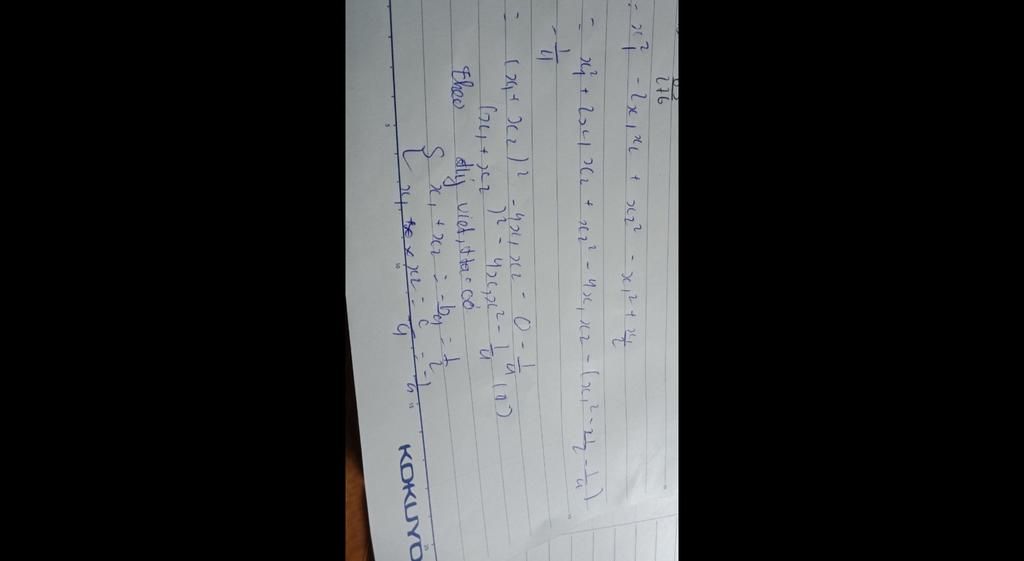 x₁² - 2x₁x₂ + x₂² - x₁² + x₁/2
= x₁² + 2x₁x₂ + x₂² - 4x₁x₂ - (x₁² - x₁/2 - 1/4)
- 1/4
= (x₁ + x₂)² - 4x₁x₂ - 0 - 1/4
(x₁ + x₂)² - 4x₁x² - 1/4 (1)
theo đlý viet, ta có
{ x₁ + x₂ = = 1/2
x₁ × x₂ = = -1/4
KOKUYO